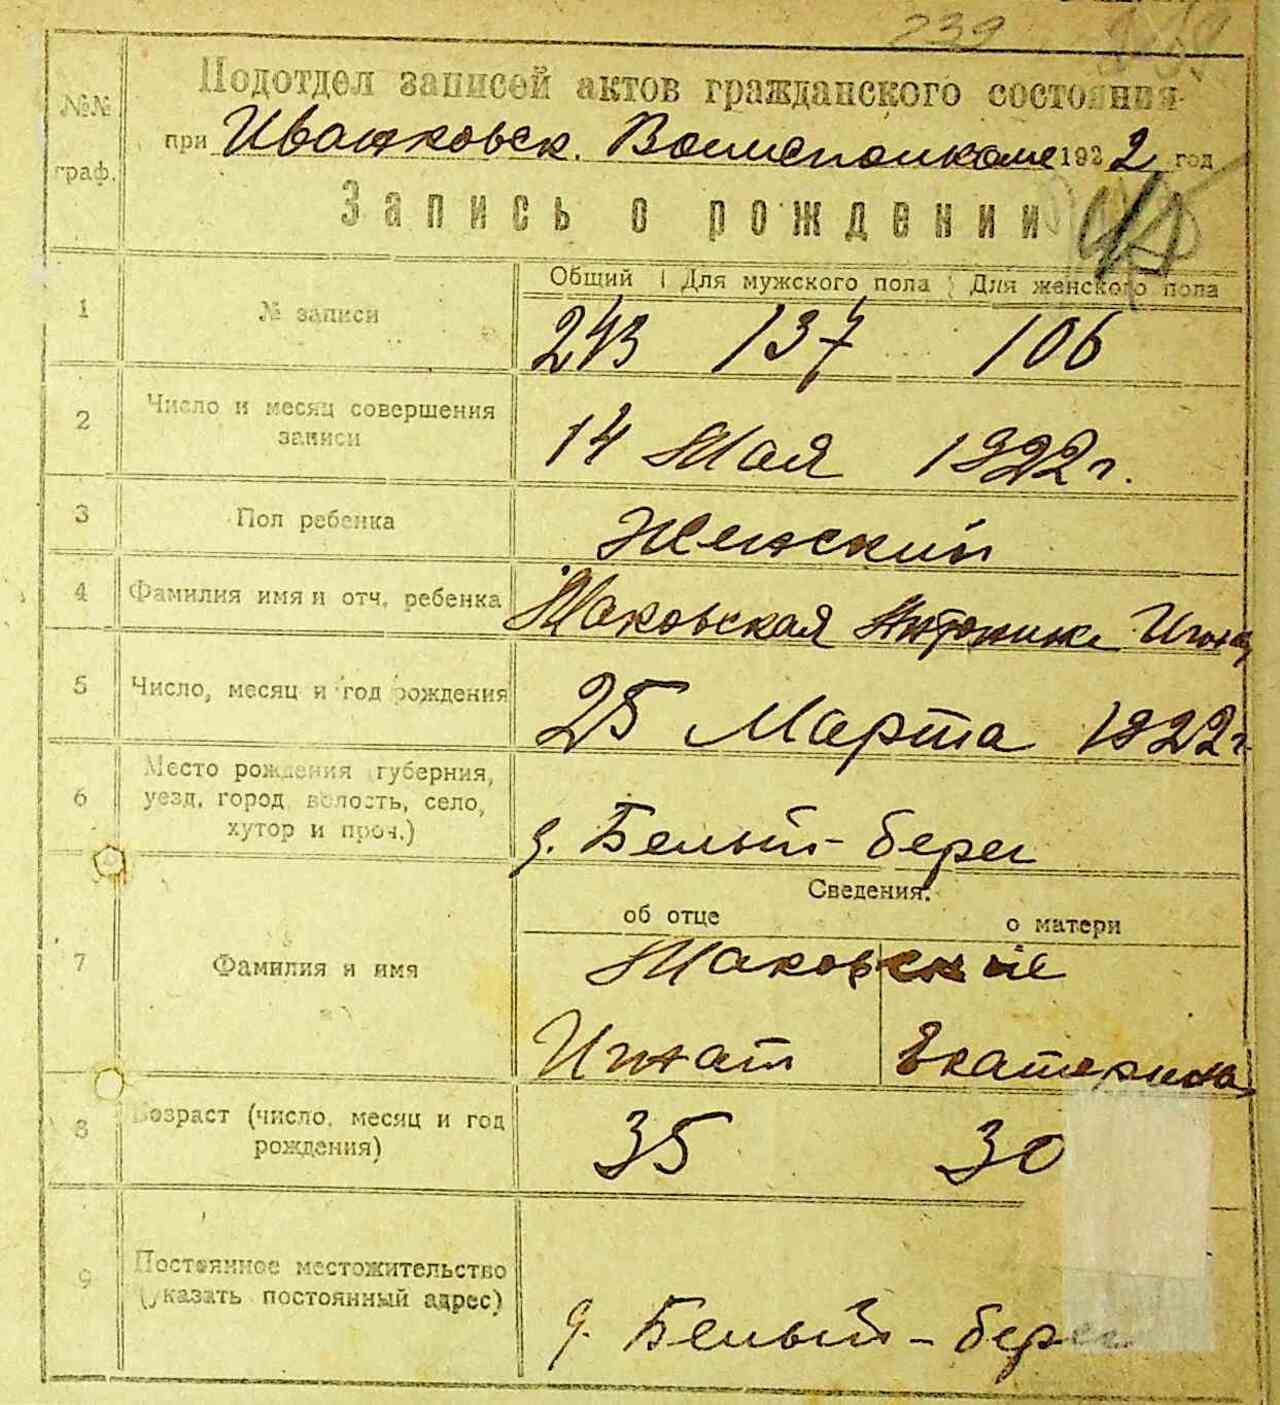 239
Подотдел записей актов гражданского состояния
№№ граф.
при Иванковск. Волисполкоме 1922 год
Запись о рождении
Общий Для мужского пола Для женского пола
1 № записи 243 137 106
2 Число и месяц совершения
записи
14 Мая 1922 г.
3 Пол ребенка Женский
4 Фамилия имя и отч. ребенка Маковская
5 Число, месяц и год рождения 25 Марта 1922 г
6 Место рождения (губерния,
уезд, город волость, село,
хутор и проч.)
д. Белый-берег
Сведения:
об отце о матери
7 Фамилия и имя Маковские
Игнат Екатерина
8 Возраст (число, месяц и год
рождения)
35 30
9 Постоянное местожительство
(указать постоянный адрес)
д. Белый-берег